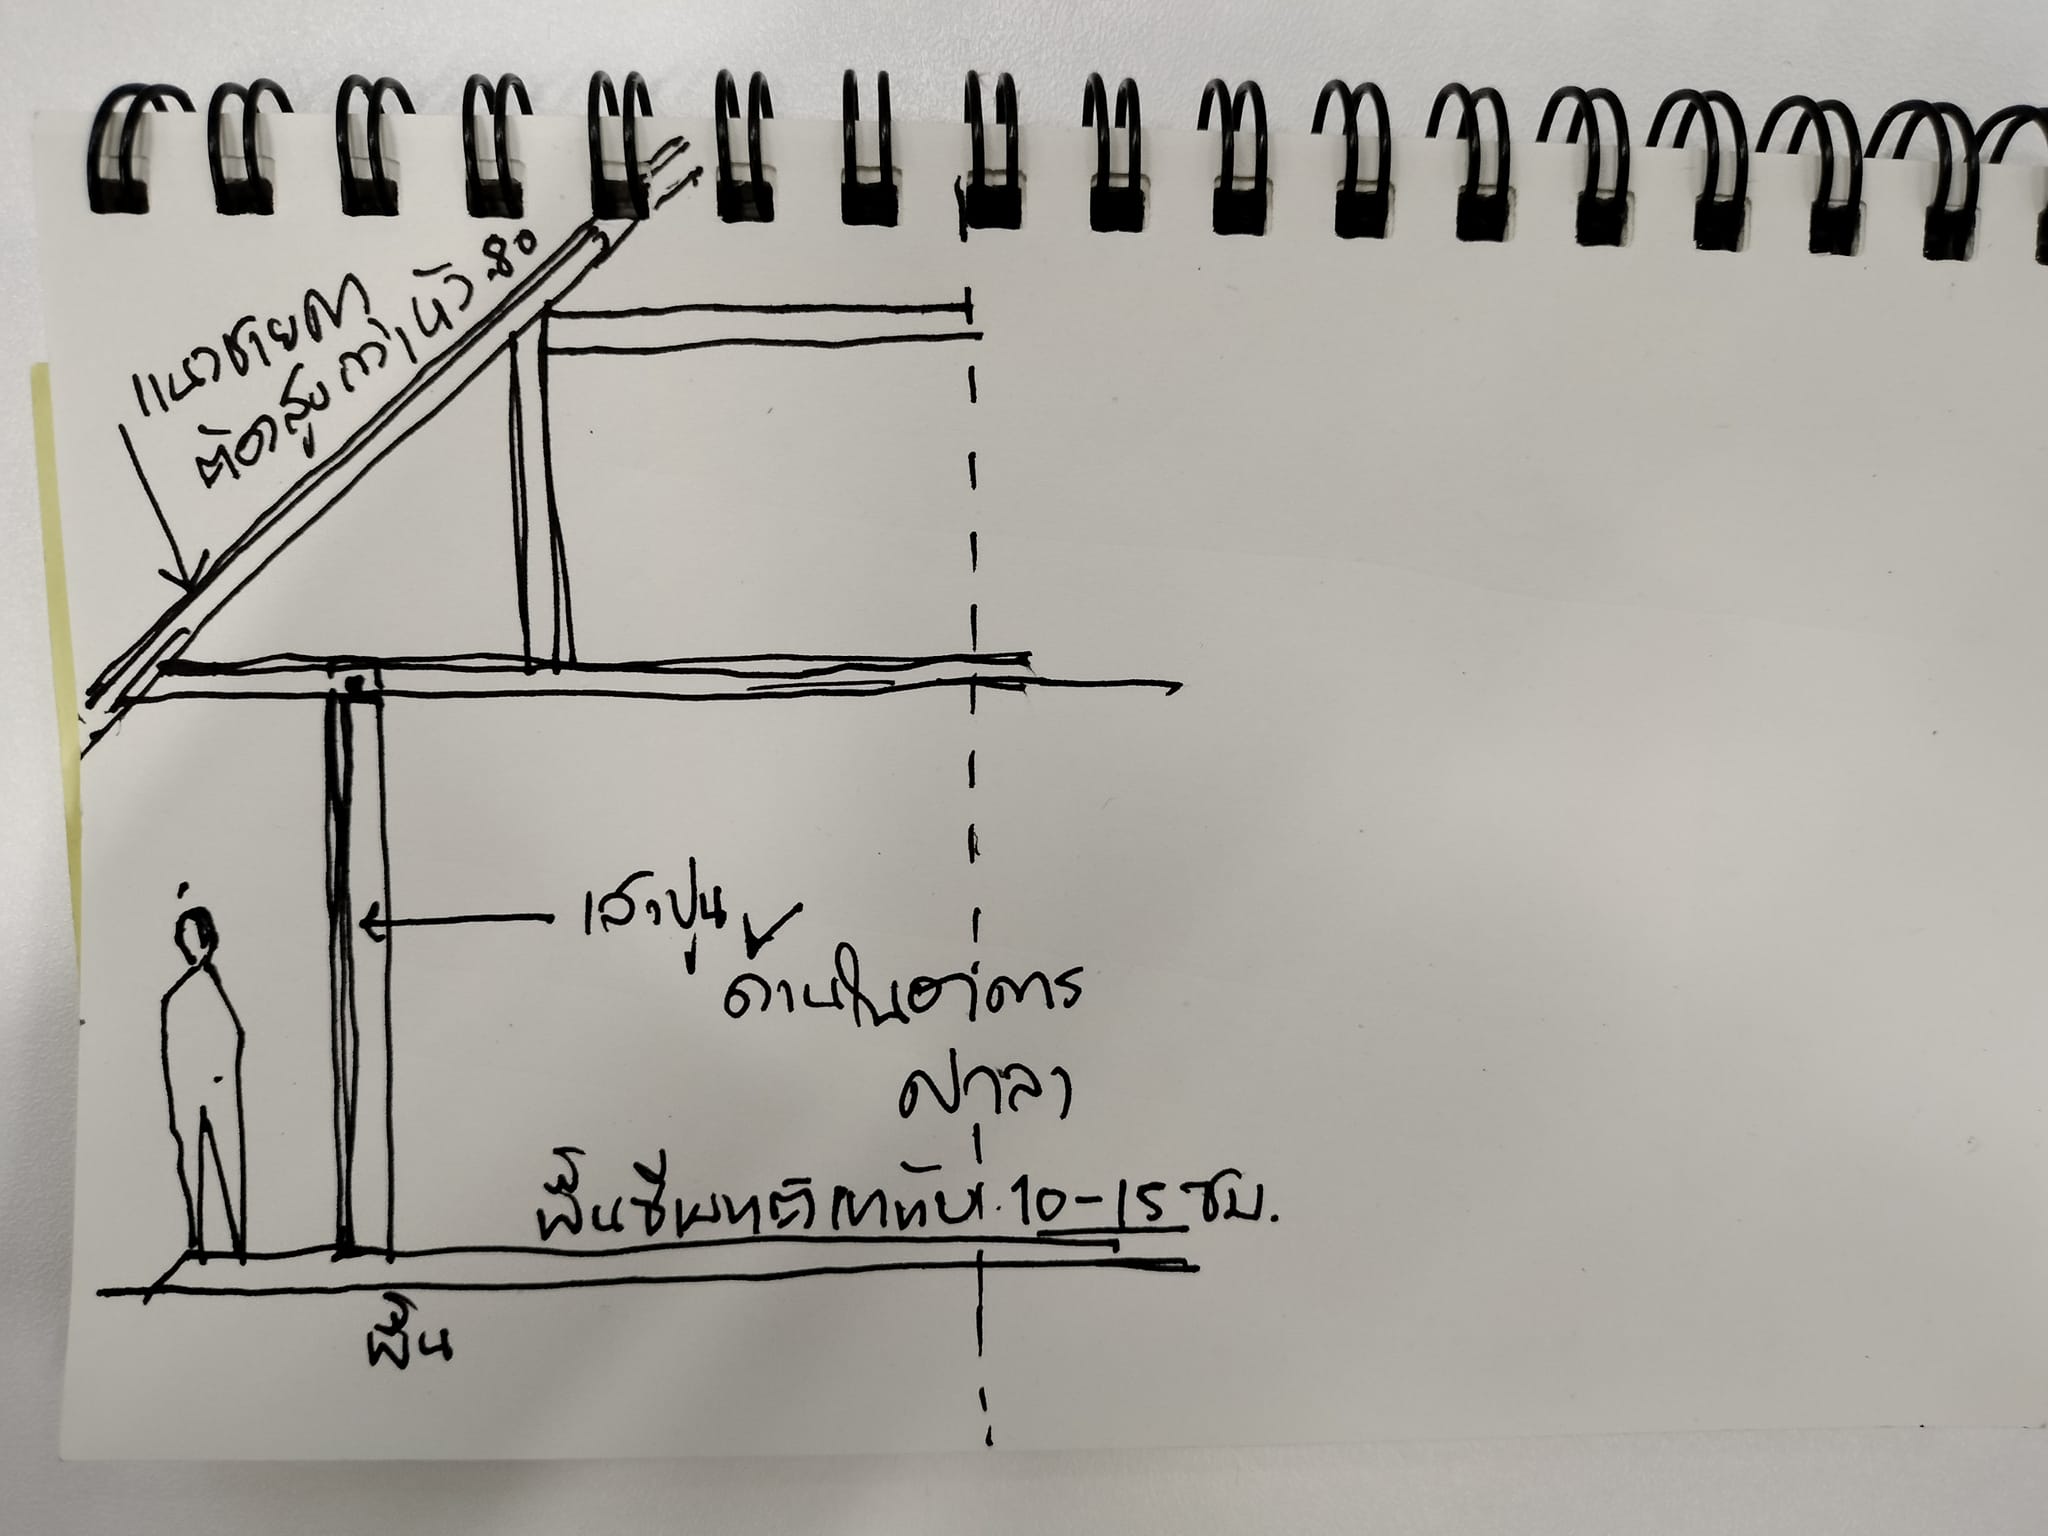 แนวชายคา
ตัดสูงกว่าหัว 80
เสาปูน
ด้านในอาคาร
ศาลา
พื้นซีเมนต์เททับ 10-15 ซม.
พื้น